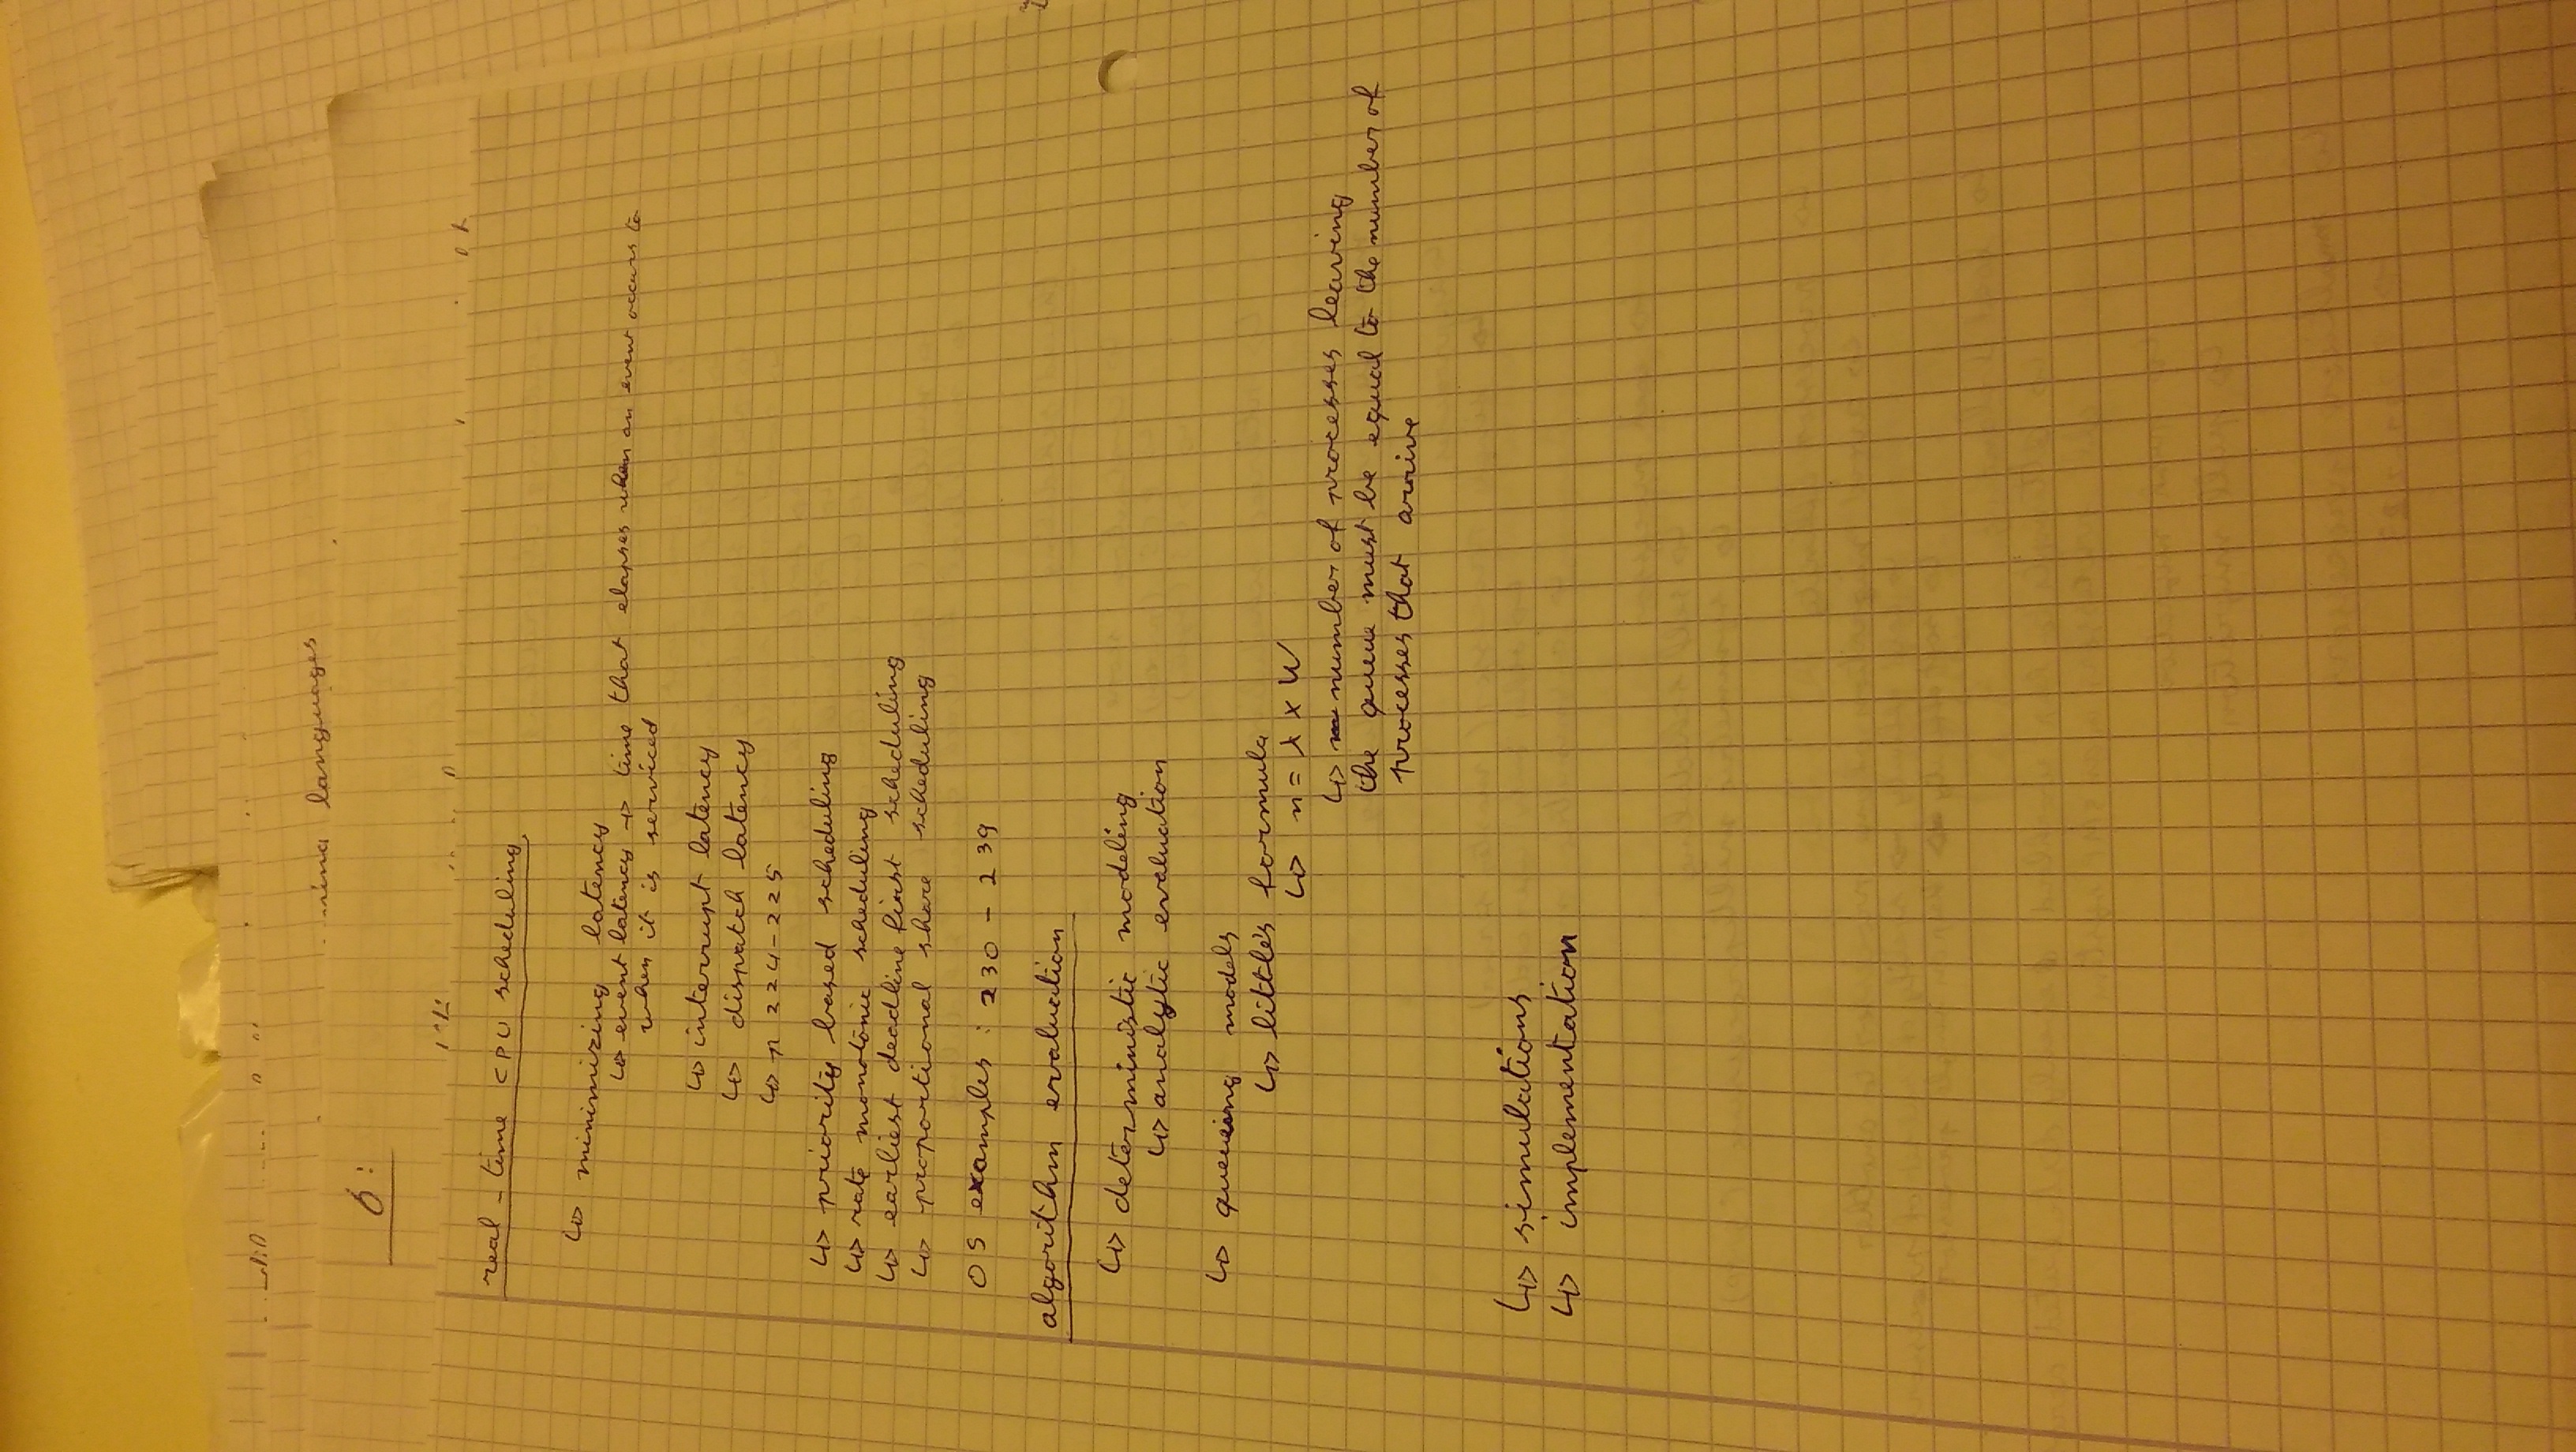 languages
6:
real-time CPU scheduling
↳ minimizing latency
↳ event latency → time that elapses when an event occurs to
when it is serviced
↳ interrupt latency
↳ dispatch latency
↳ p 224-225
↳ priority based scheduling
↳ rate monotonic scheduling
↳ earliest deadline first scheduling
↳ proportional share scheduling
OS examples : 230 - 239
algorithm evaluation
↳ deterministic modeling
↳ analytic evaluation
↳ queueing models
↳ little's formula
↳ n = λ × W
↳ number of processes leaving
the queue must be equal to the number of
processes that arrive
↳ simulations
↳ implementation